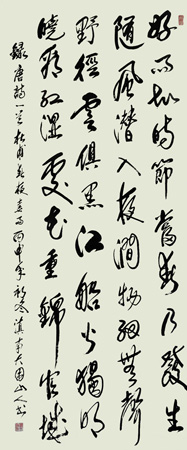 好雨知時節當春乃發生
隨風潛入夜潤物細無聲
野徑雲俱黑江船火獨明
曉看紅濕處花重錦官城
録唐詩一首杜甫春夜喜雨丙申年初冬滇南大围山人书